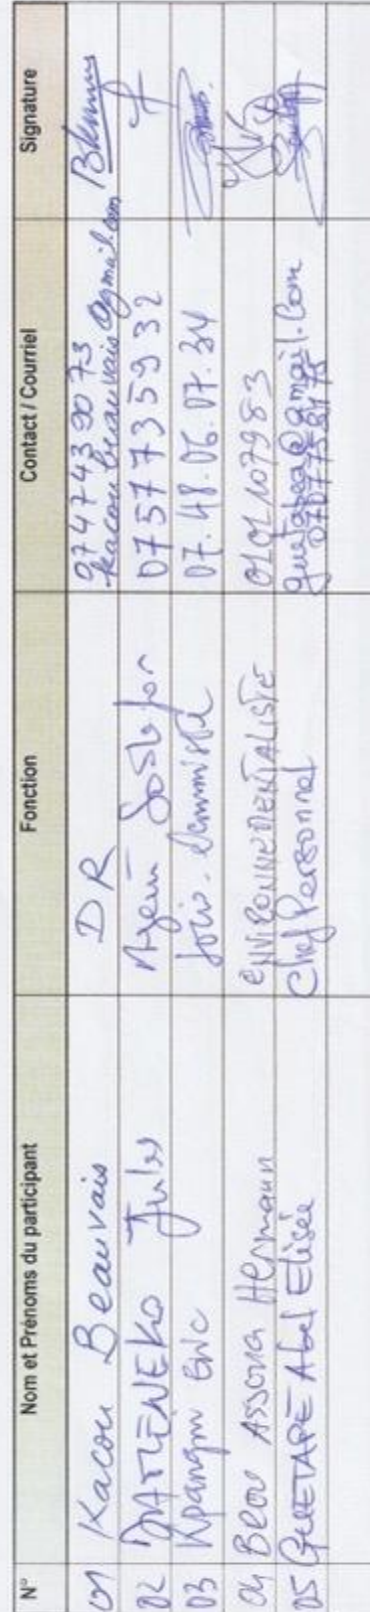 N° Nom et Prénoms du participant Fonction Contact / Courriel Signature
01 Kacou Beauvais DR 0747439073
kacoubeauvais@gmail.com
02 Jules Agent 0757735932
03 Kpangni Eric Socio-économiste 07.48.06.07.34
04 Blou Assoua Hermann ENVIRONNEMENTALISTE 0101107983
05 GUETAPE Abel Elisée Chef Personnel guetapea@gmail.com